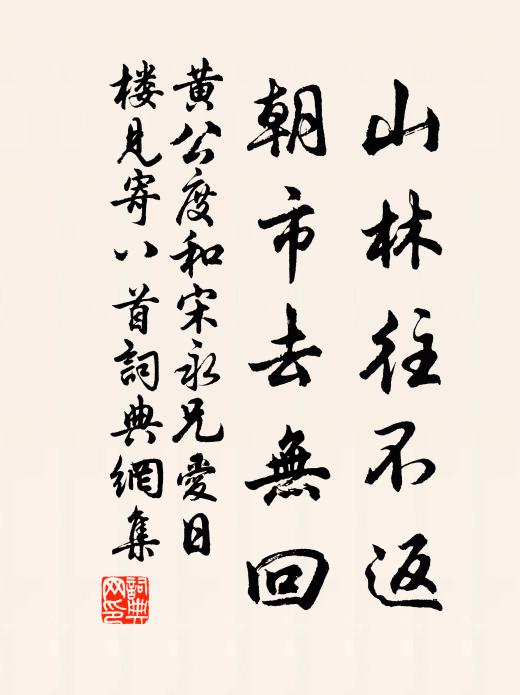 山林往不返
朝市去無回
黄公度和宋永兄愛日
楼見寄八首詞典網集
詞典網印